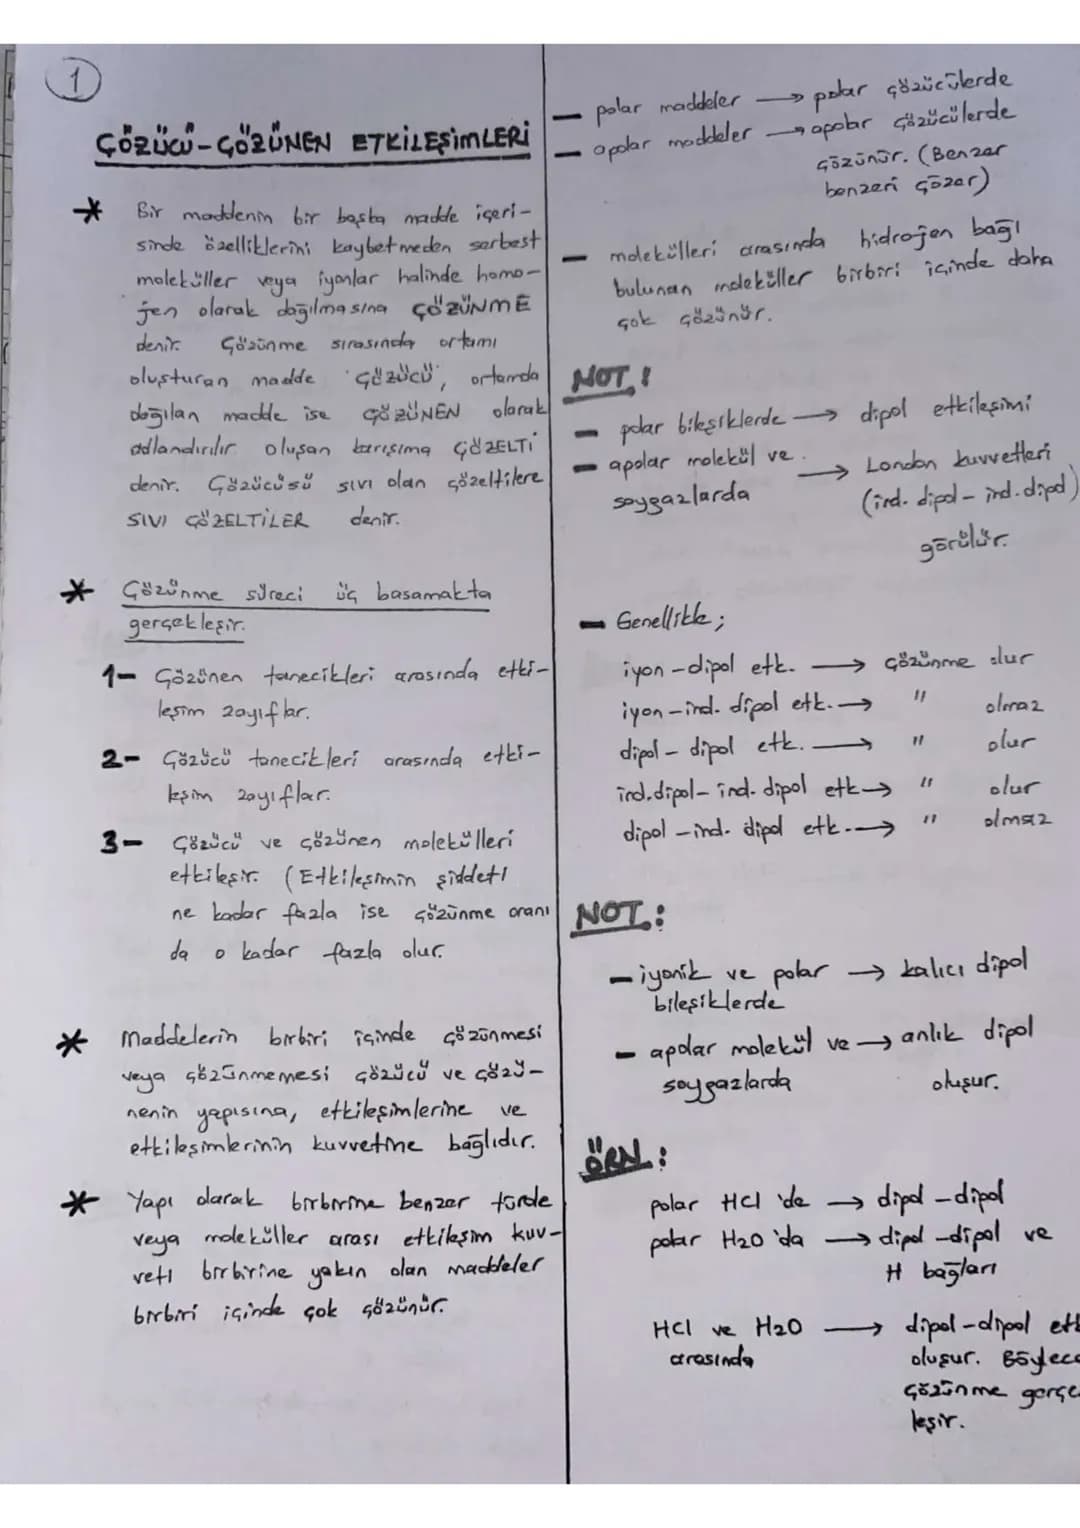 1
ÇÖZÜCÜ-ÇÖZÜNEN ETKİLEŞİMLERİ
* Bir maddenin bir başka madde içeri-
sinde özelliklerini kaybetmeden serbest
moleküller veya iyonlar halinde homo-
jen olarak dağılmasına ÇÖZÜNME
denir. Çözünme sırasında ortamı
oluşturan madde ÇÖZÜCÜ, ortamda
dağılan madde ise ÇÖZÜNEN olarak
adlandırılır oluşan karışıma ÇÖZELTİ
denir. Çözücüsü sıvı olan çözeltilere
SIVI ÇÖZELTİLER denir.
* Çözünme süreci üç basamakta
gerçekleşir.
1- Çözünen tanecikleri arasında etki-
leşim zayıflar.
2- Çözücü tanecikleri arasında etki-
leşim zayıflar.
3- Çözücü ve çözünen molekülleri
etkileşir. (Etkileşimin şiddeti
ne kadar fazla ise çözünme oranı
da o kadar fazla olur.
* Maddelerin birbiri içinde çözünmesi
veya çözünmemesi çözücü ve çözü-
nenin yapısına, etkileşimlerine ve
etkileşimlerinin kuvvetine bağlıdır.
* Yapı olarak birbirine benzer türde
veya moleküller arası etkileşim kuv-
veti birbirine yakın olan maddeler
birbiri içinde çok çözünür.
- polar maddeler → polar çözücülerde
- apolar maddeler → apolar çözücülerde
çözünür. (Benzer
benzeri çözer)
- molekülleri arasında hidrojen bağı
bulunan moleküller birbiri içinde daha
çok çözünür.
NOT!
- polar bileşiklerde → dipol etkileşimi
- apolar molekül ve → London kuvvetleri
soygazlarda (ind. dipol - ind. dipol)
görülür.
- Genellikle;
iyon - dipol etk. → çözünme olur
iyon - ind. dipol etk. → " olmaz
dipol - dipol etk. → " olur
ind. dipol - ind. dipol etk → " olur
dipol - ind. dipol etk. → " olmaz
NOT:
- iyonik ve polar → kalıcı dipol
bileşiklerde
- apolar molekül ve → anlık dipol
soygazlarda oluşur.
ÖRN:
polar HCl 'de → dipol - dipol
polar H2O 'da → dipol - dipol ve
H bağları
HCl ve H2O → dipol-dipol etk
arasında oluşur. Böylece
çözünme gerçe
leşir.